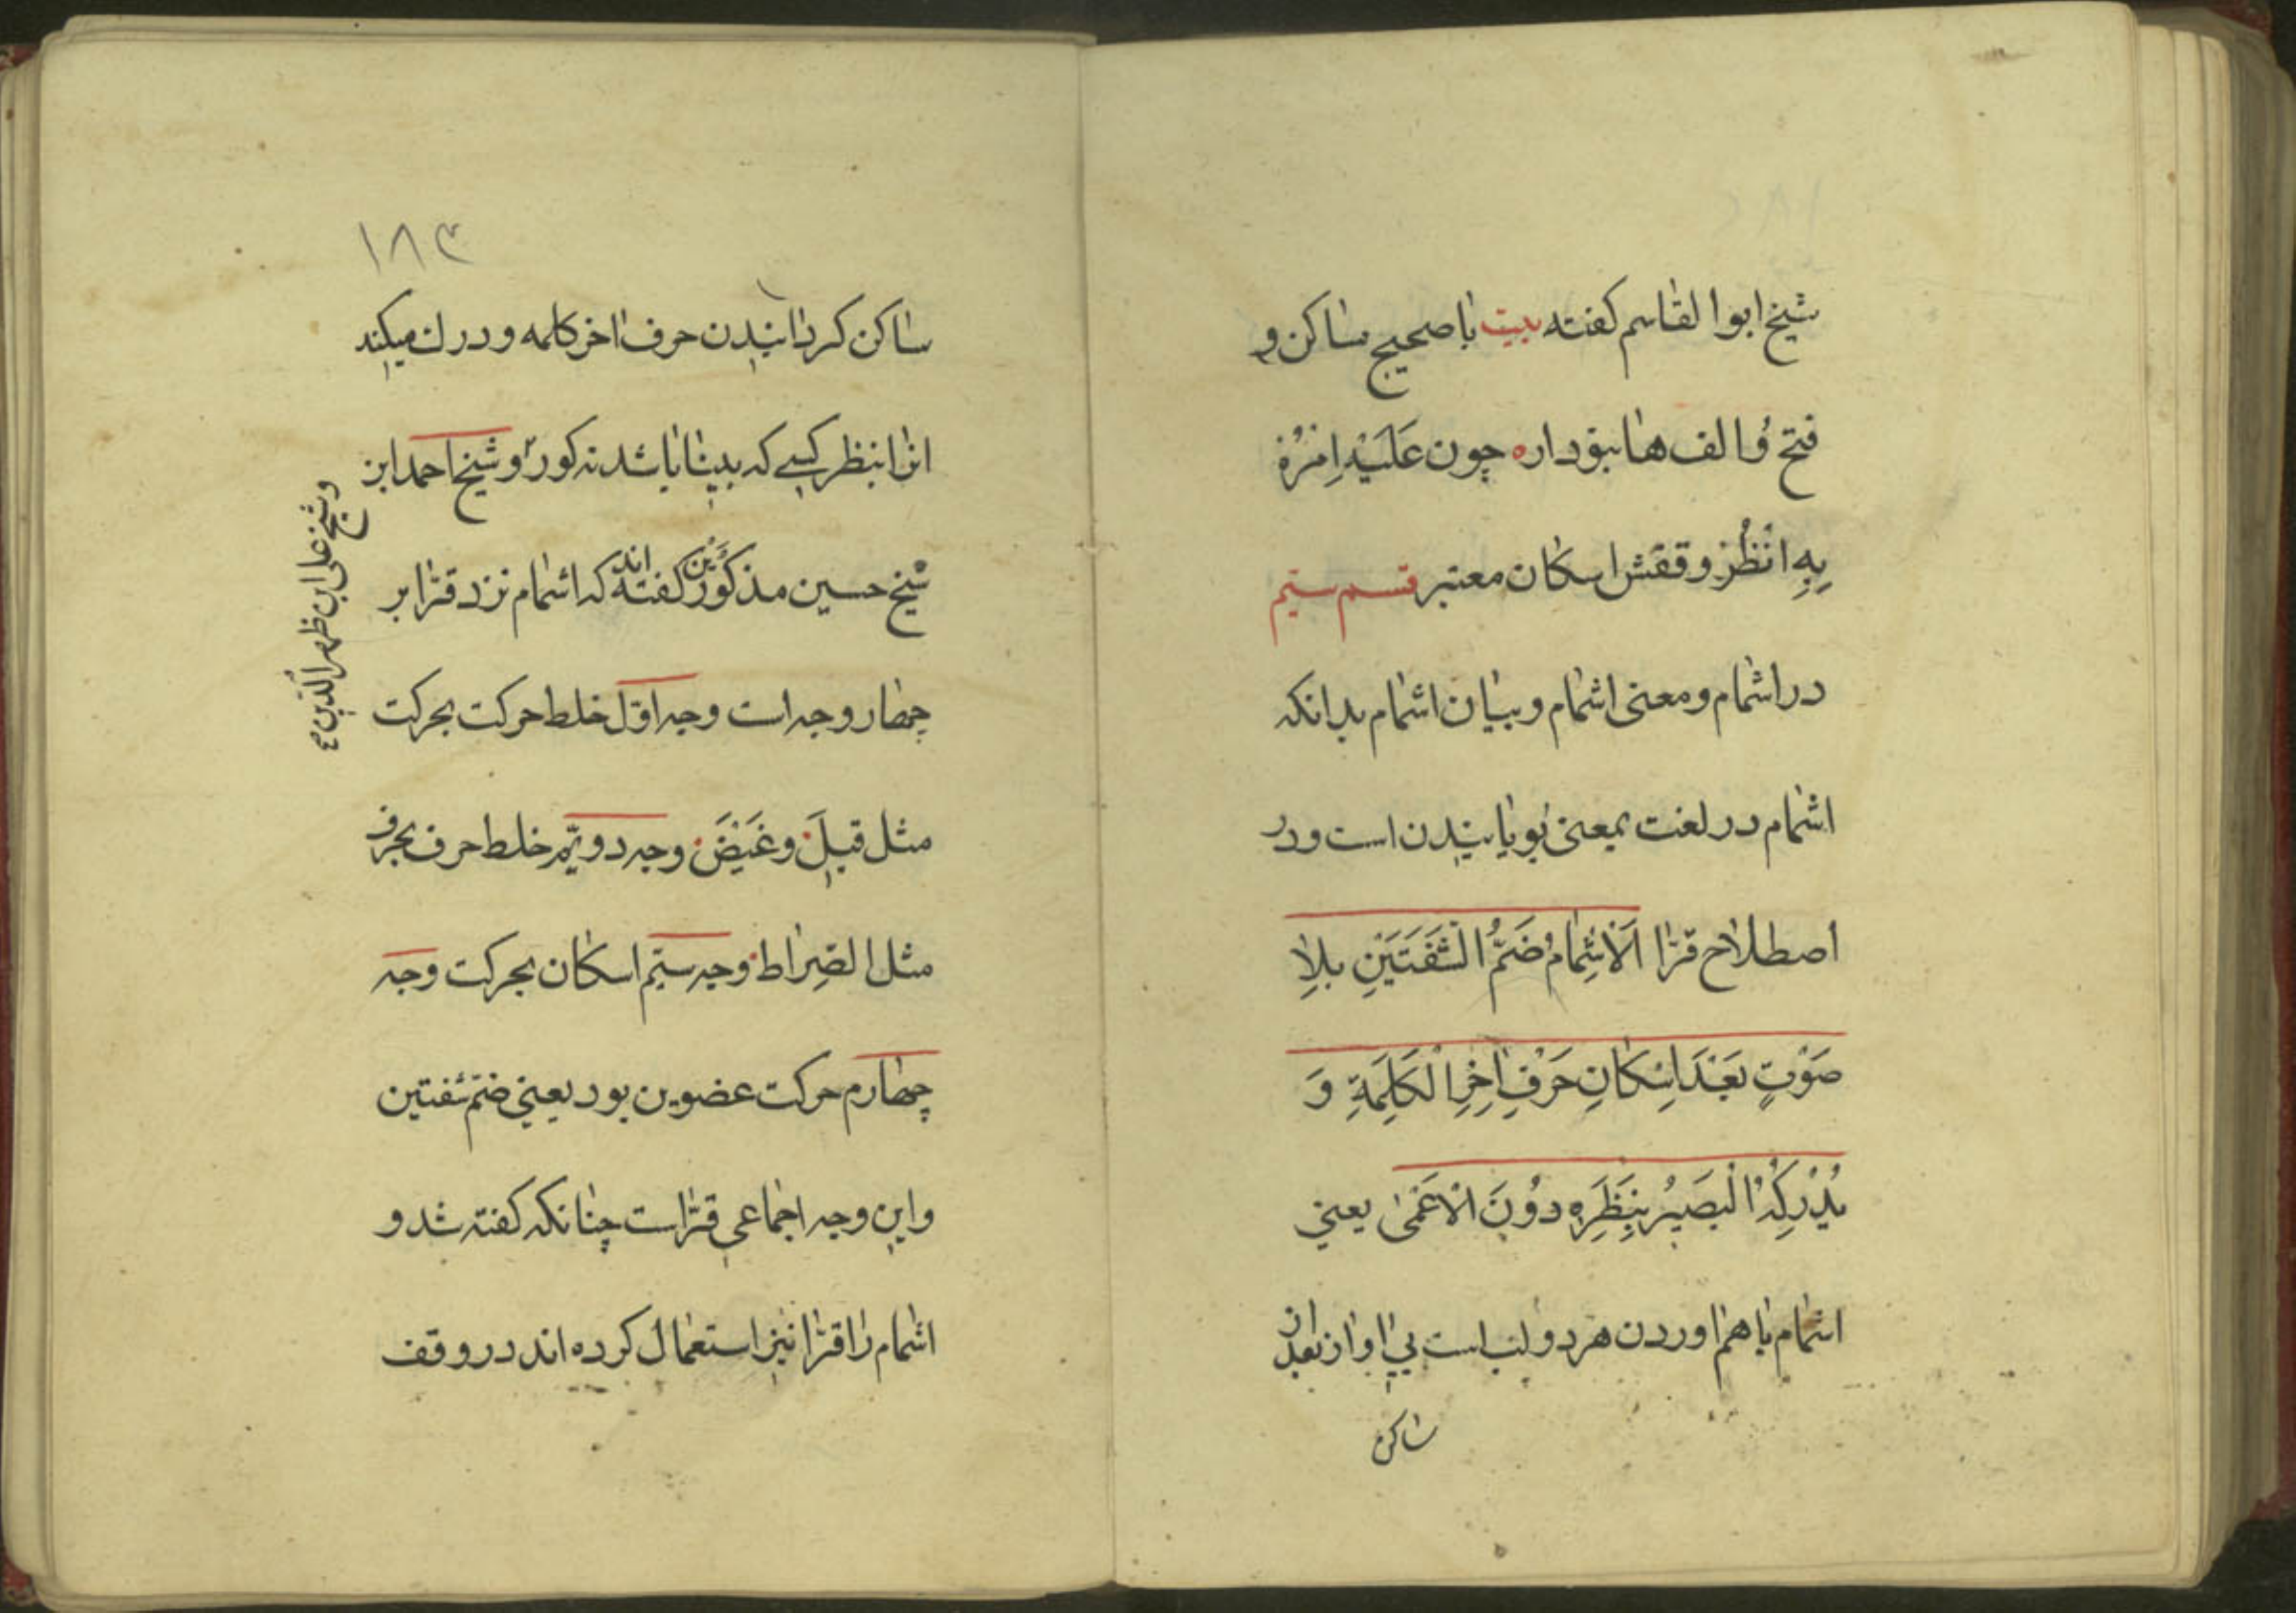 شیخ ابوالقاسم کفته بیت با صحیح ساکن و
فتح و الف ها بود اره چون عَلَیْهِ اِمْرُهْ
بِهِ انْظُرْ وقفش اسکان معتبر قسم سیّم
در اشمام و معنی اشمام و بیان اشمام بدانکه
اشمام در لغت بمعنی بویانیدن است و در
اصطلاح قرّا اَلْاشِمٰامُ ضَمُّ الْشَفَتَیْنِ بِلاٰ
صَوْتٍ بَعْدَ اِسْکٰانِ حَرْفِ اٰخِرِ الْکَلِمَةِ وَ
یُدْرِکِهُ الْبَصیٖرُ بِنَظَرِهِ دوُنَ الْاَعْمیٰ یعنی
اشمام با هم اوردن هر دو لب است بی اواز بعد از
ساکن
۱۸۳
ساکن کردانیدن حرف اخر کلمه و درك میکند
انرا بنظر کسے که بینا باشد نه کور و شیخ احمد ابن
شیخ حسین مذکورَیْن کفته اند که اشمام نزد قرّا بر
چهار وجه است وجه اوّل خلط حرکت بحرکت
مثل قیلَ وغیٖضَ وجه دویّم خلط حرف بحرف
مثل الصِراط وجه سیّم اسکان بحرکت وجه
چهارم حرکت عضوین بود یعنی ضمّ شفتین
و این وجه اجماعی قرّا است چنانکه کفته شد و
اشمام را قرّا نیز استعمال کرده اند در وقف
وشیخ علی ابن ظهر الدّین